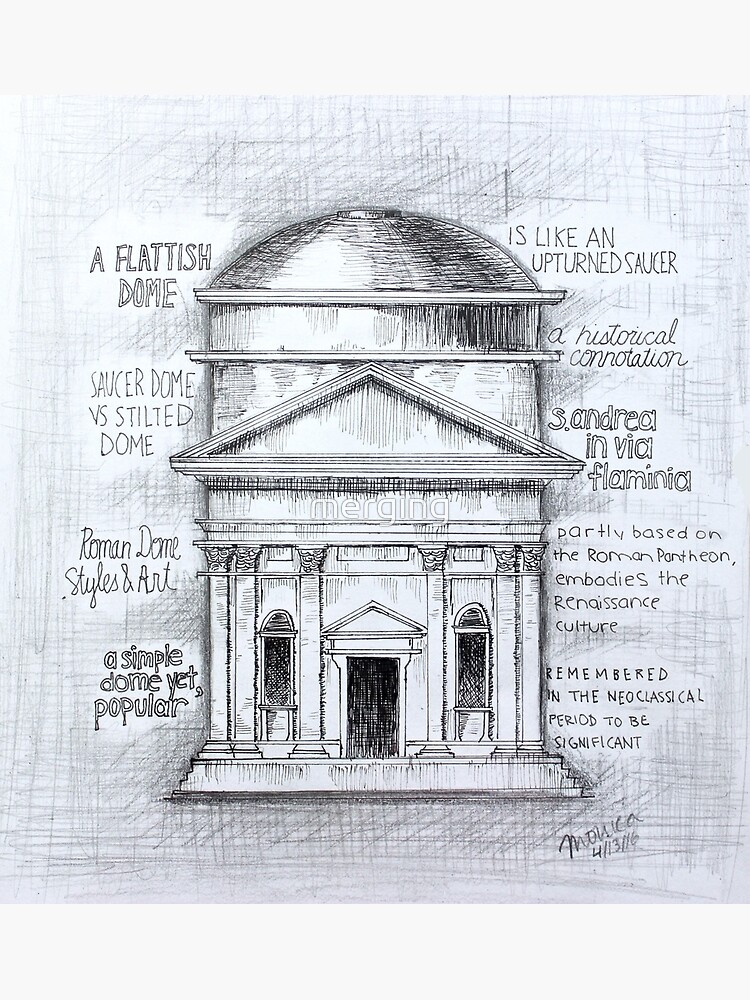 A FLATTISH
DOME
IS LIKE AN
UPTURNED SAUCER
a historical
connotation
SAUCER DOME
VS STILTED
DOME
s.andrea
in via
flaminia
merging
Roman Dome
Styles & Art
partly based on
the Roman Pantheon,
embodies the
Renaissance
culture
a simple
dome yet,
popular
REMEMBERED
IN THE NEOCLASSICAL
PERIOD TO BE
SIGNIFICANT
Monica
4/13/16